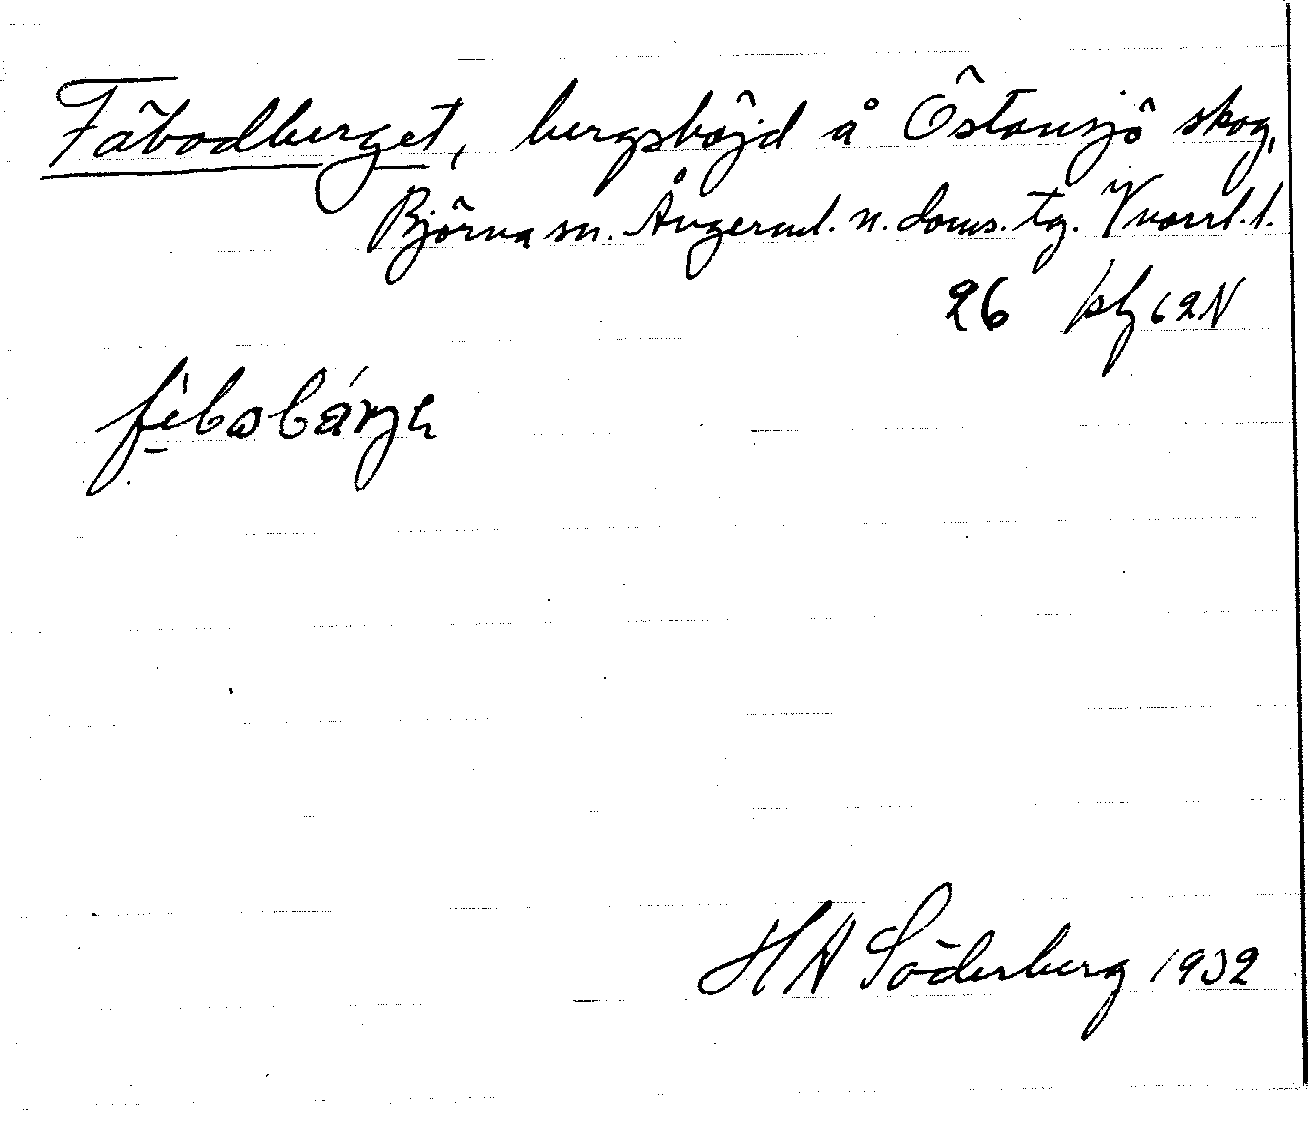 Fäbodberget, bergshöjd å Östansjö skog,
Björna sn. Ångerml. n. doms. tg. Vnorrl. l.
26 62N
H A Söderberg 1932